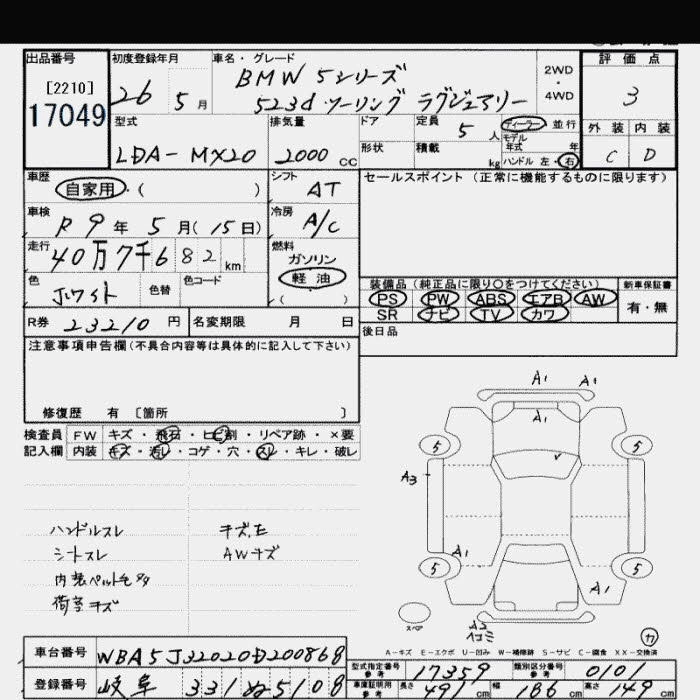 出品番号 初度登録年月 車名・グレード 評価点
[2210] 26 5月 BMW 5シリーズ 2WD・4WD 3
17049 523d ツーリング ラグジュアリー
型式 排気量 ドア 定員 5人 ディーラー 並行 外装 内装
LDA-MX20 2000cc 形状 積載 kg モデル年式 年 ハンドル 左・右 C D
車歴 自家用・( ) シフト AT セールスポイント(正常に機能するものに限ります)
車検 R9年5月(15日) 冷房 A/C
走行 40万7千682km 燃料 ガソリン
色 ホワイト 色替 色コード 軽油 ( )
装備品(純正品に限り○をつけてください) 新車保証書
PS PW ABS エアB AW 有・無
SR ナビ TV カワ
R券 23210円 名変期限 月 日 後日品
注意事項申告欄(不具合内容等は具体的に記入して下さい)
修復歴 有 〔箇所 〕
検査員 FW キズ・飛石・ヒビ割・リペア跡・×要
記入欄 内装 キズ・汚レ・コゲ・穴・スレ・キレ・破レ
A1 A1
A1
5 5
A3
A1
5 5
A1
スペア
A2
ハンドルスレ キズ,E
シートスレ AWキズ
内装ペット毛多
荷室キズ
カ
A-キズ E-エクボ U-凹み W-補修跡 S-サビ C-腐食 XX-交換済
車台番号 WBA5J32020D200868
型式指定番号 参考 17359 類別区分番号 参考 0101
登録番号 岐阜 331 ぬ 5108
車庫証明用 参考 長さ 491cm 幅 186cm 高さ 149cm